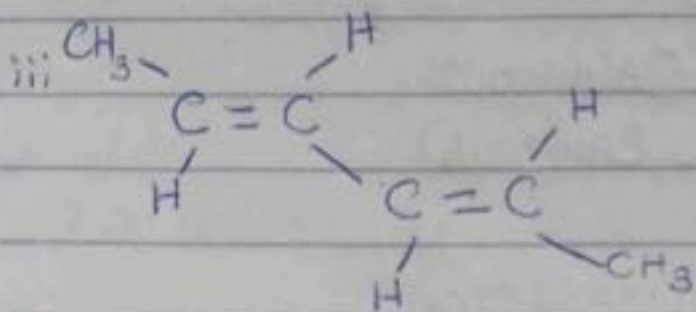 iii CH3 H
C = C H
H C = C
H CH3